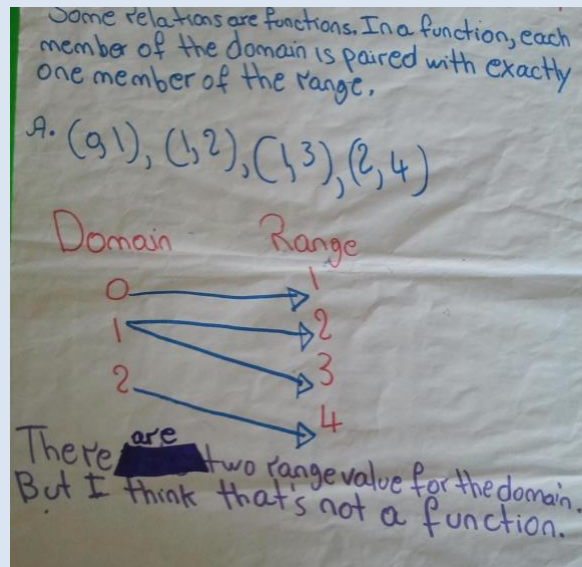 Some relations are functions. In a function, each
member of the domain is paired with exactly
one member of the range.
A. (0,1), (1,2), (1,3), (2,4)
Domain Range
0 1
1 2
3
2 4
There are two range value for the domain.
But I think that's not a function.